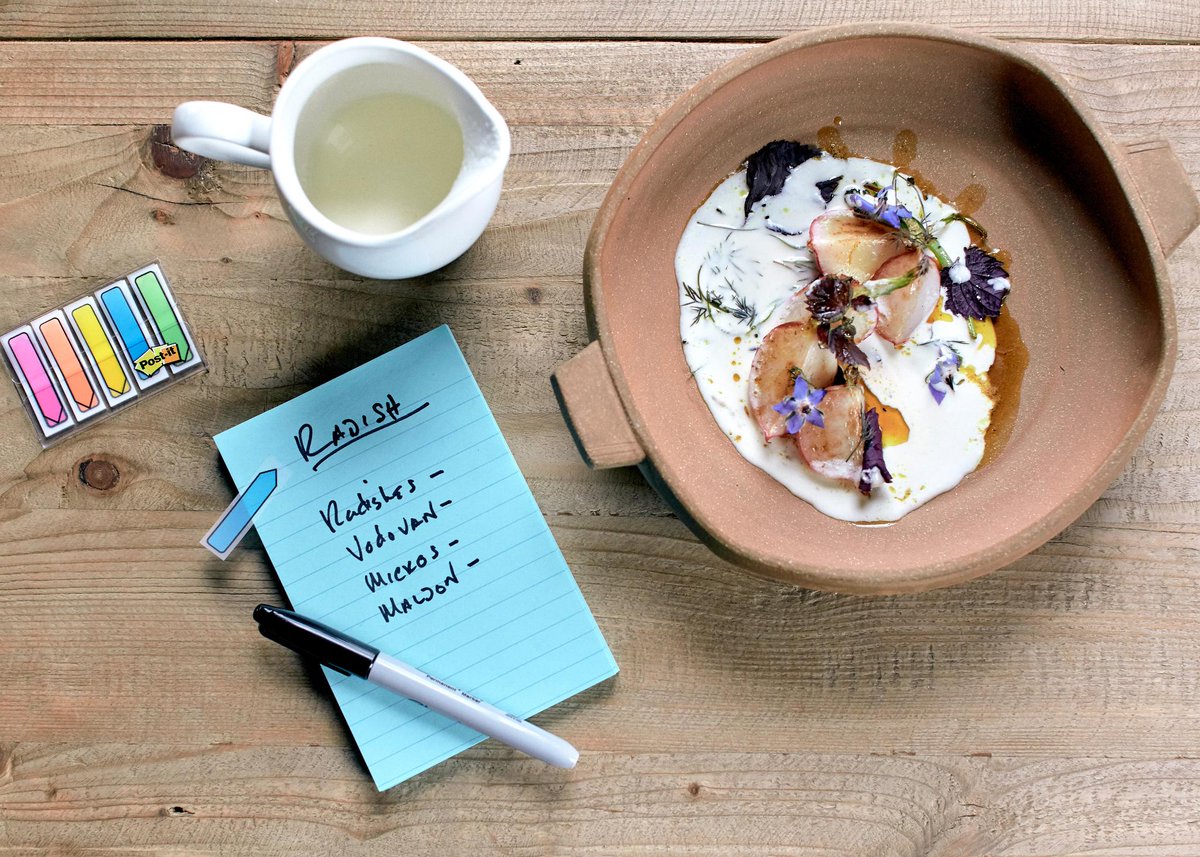 Post-it
RADISH
Radishes -
VODOVAN -
MICROS -
MALDON -
Permanent Marker